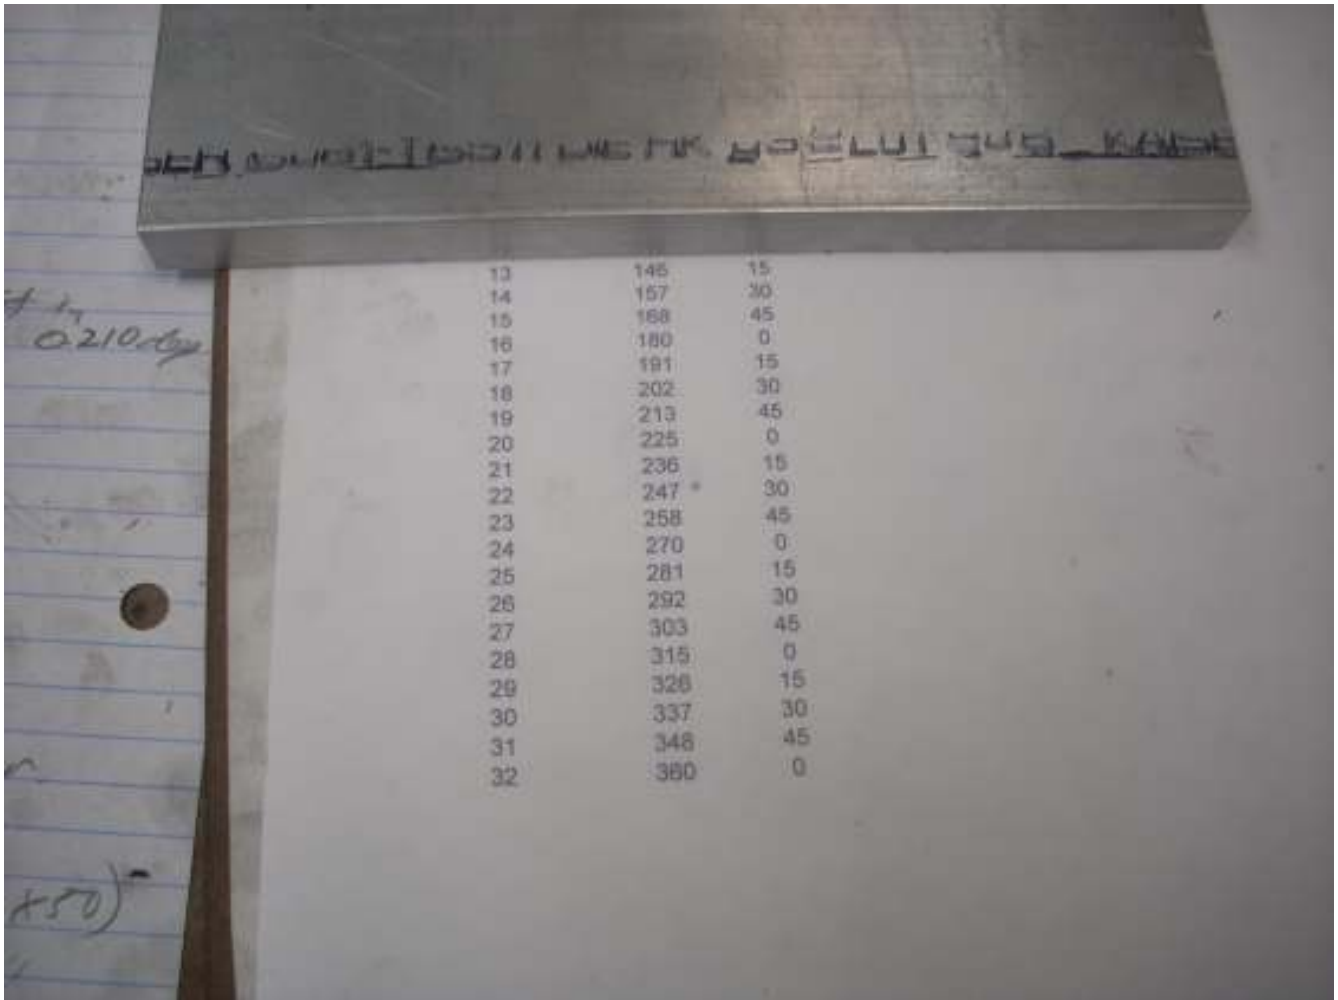 13 146 15
14 157 30
15 168 45
16 180 0
17 191 15
18 202 30
19 213 45
20 225 0
21 236 15
22 247 30
23 258 45
24 270 0
25 281 15
26 292 30
27 303 45
28 315 0
29 326 15
30 337 30
31 348 45
32 360 0
0.210
+50)